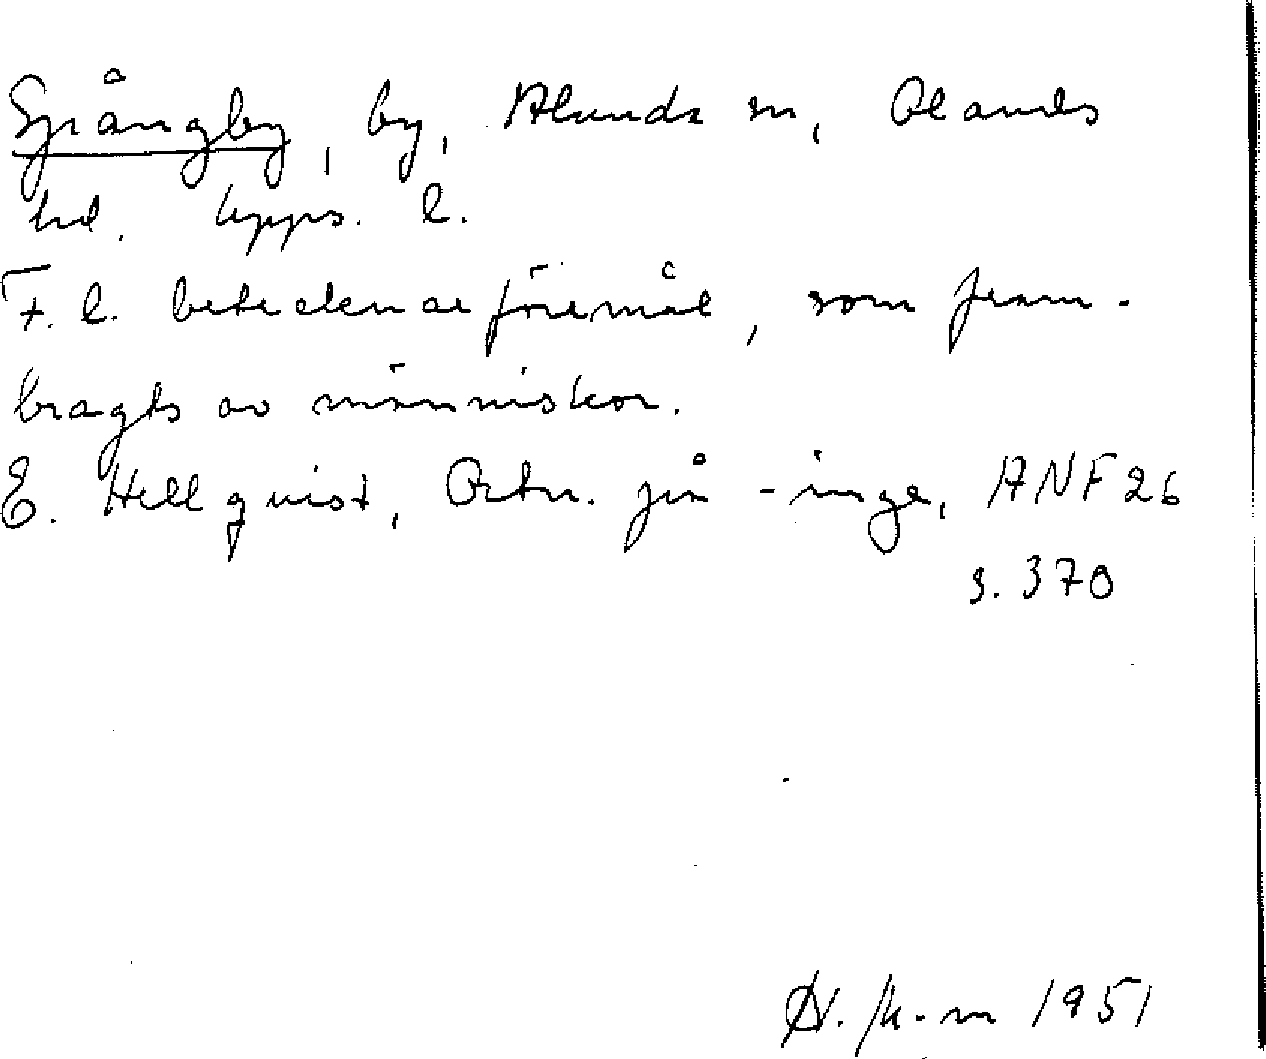 Spångby, by, Alunda sn, Olands
hd. Upps. l.
F. l. betecknar föremål, som fram-
bragts av människor.
E. Hellquist, Ortn. på -inge, ANF 26
s. 370
1951